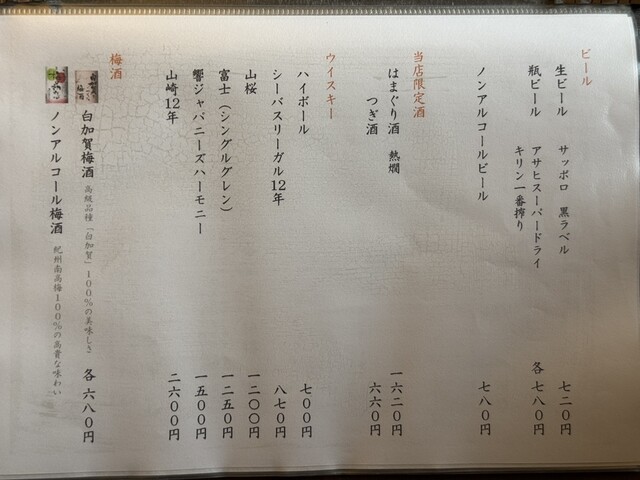 ビール
生ビール サッポロ 黒ラベル 七二〇円
瓶ビール アサヒスーパードライ
キリン一番搾り 各 七八〇円
ノンアルコールビール 七八〇円
当店限定酒
はまぐり酒 熱燗 一六二〇円
つぎ酒 六六〇円
ウイスキー
ハイボール 七〇〇円
シーバスリーガル12年 八七〇円
山桜 一二〇〇円
富士（シングルグレン） 一二五〇円
響ジャパニーズハーモニー 一五〇〇円
山崎12年 二六〇〇円
梅酒
白加賀梅酒 高級品種「白加賀」100％の美味しさ 各 六八〇円
ノンアルコール梅酒 紀州南高梅100％の高貴な味わい